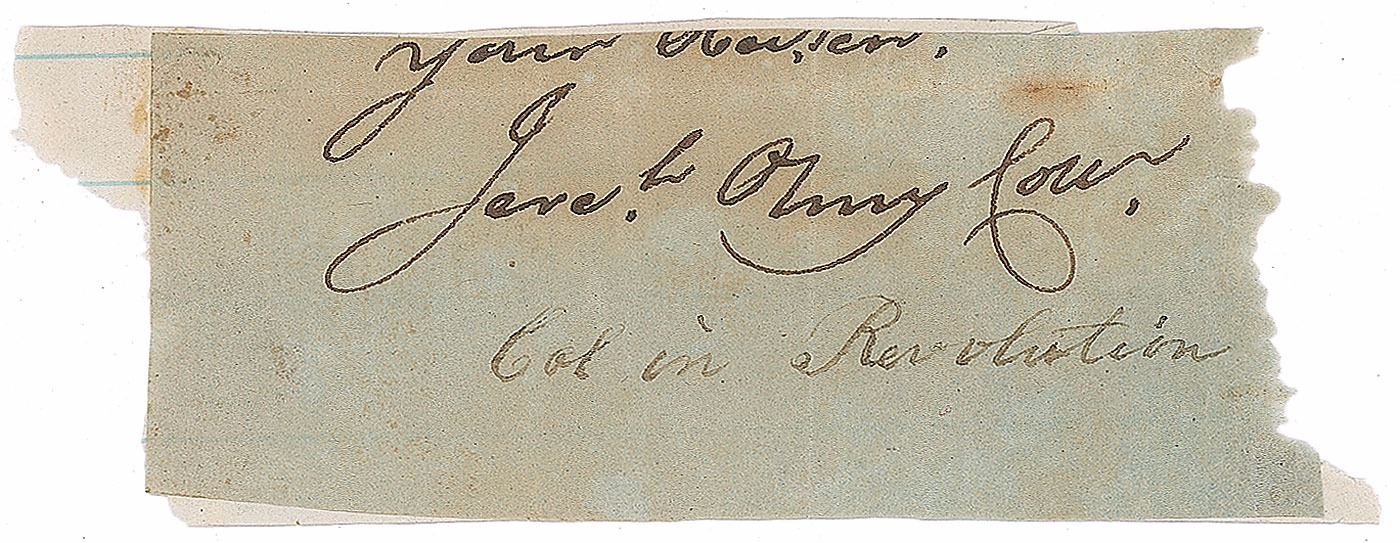 your
Jere.h Olney Collr.
Col in Revolution